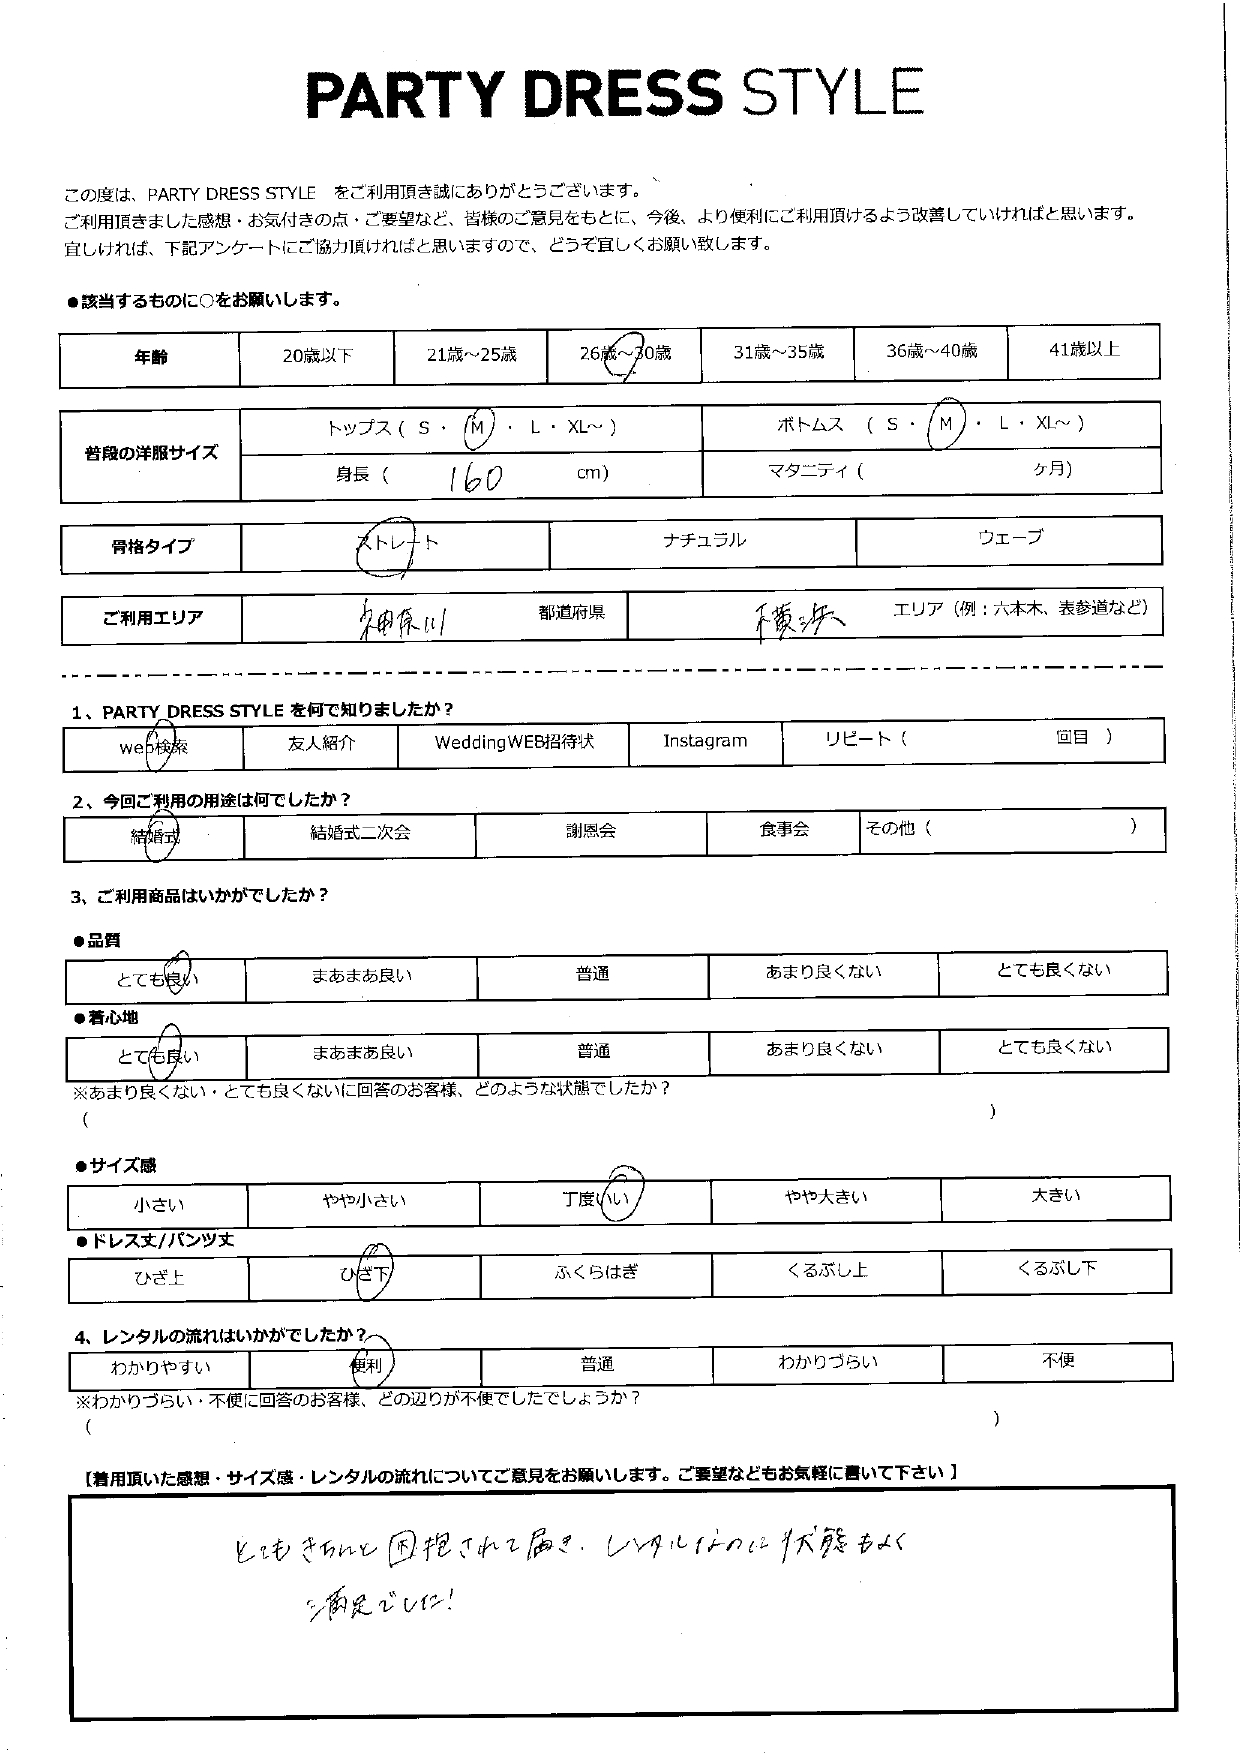 PARTY DRESS STYLE
この度は、PARTY DRESS STYLE をご利用頂き誠にありがとうございます。
ご利用頂きました感想・お気付きの点・ご要望など、皆様のご意見をもとに、今後、より便利にご利用頂けるよう改善していければと思います。
宜しければ、下記アンケートにご協力頂ければと思いますので、どうぞ宜しくお願い致します。
●該当するものに○をお願いします。
年齢 20歳以下 21歳～25歳 26歳～30歳 31歳～35歳 36歳～40歳 41歳以上
普段の洋服サイズ トップス ( S ・ M ・ L ・ XL～ ) ボトムス ( S ・ M ・ L ・ XL～ )
身長 ( 160 cm) マタニティ ( ヶ月)
骨格タイプ ストレート ナチュラル ウェーブ
ご利用エリア 神奈川 都道府県 横浜 エリア (例：六本木、表参道など)
1、PARTY DRESS STYLE を何で知りましたか？
web検索 友人紹介 WeddingWEB招待状 Instagram リピート ( 回目 )
2、今回ご利用の用途は何でしたか？
結婚式 結婚式二次会 謝恩会 食事会 その他 ( )
3、ご利用商品はいかがでしたか？
●品質
とても良い まあまあ良い 普通 あまり良くない とても良くない
●着心地
とても良い まあまあ良い 普通 あまり良くない とても良くない
※あまり良くない・とても良くないに回答のお客様、どのような状態でしたか？
( )
●サイズ感
小さい やや小さい 丁度いい やや大きい 大きい
●ドレス丈/パンツ丈
ひざ上 ひざ下 ふくらはぎ くるぶし上 くるぶし下
4、レンタルの流れはいかがでしたか？
わかりやすい 便利 普通 わかりづらい 不便
※わかりづらい・不便に回答のお客様、どの辺りが不便でしたでしょうか？
( )
【着用頂いた感想・サイズ感・レンタルの流れについてご意見をお願いします。ご要望などもお気軽に書いて下さい 】
とてもきちんと困抱されて届き、レンタルなのに状態もよく
満足でした！